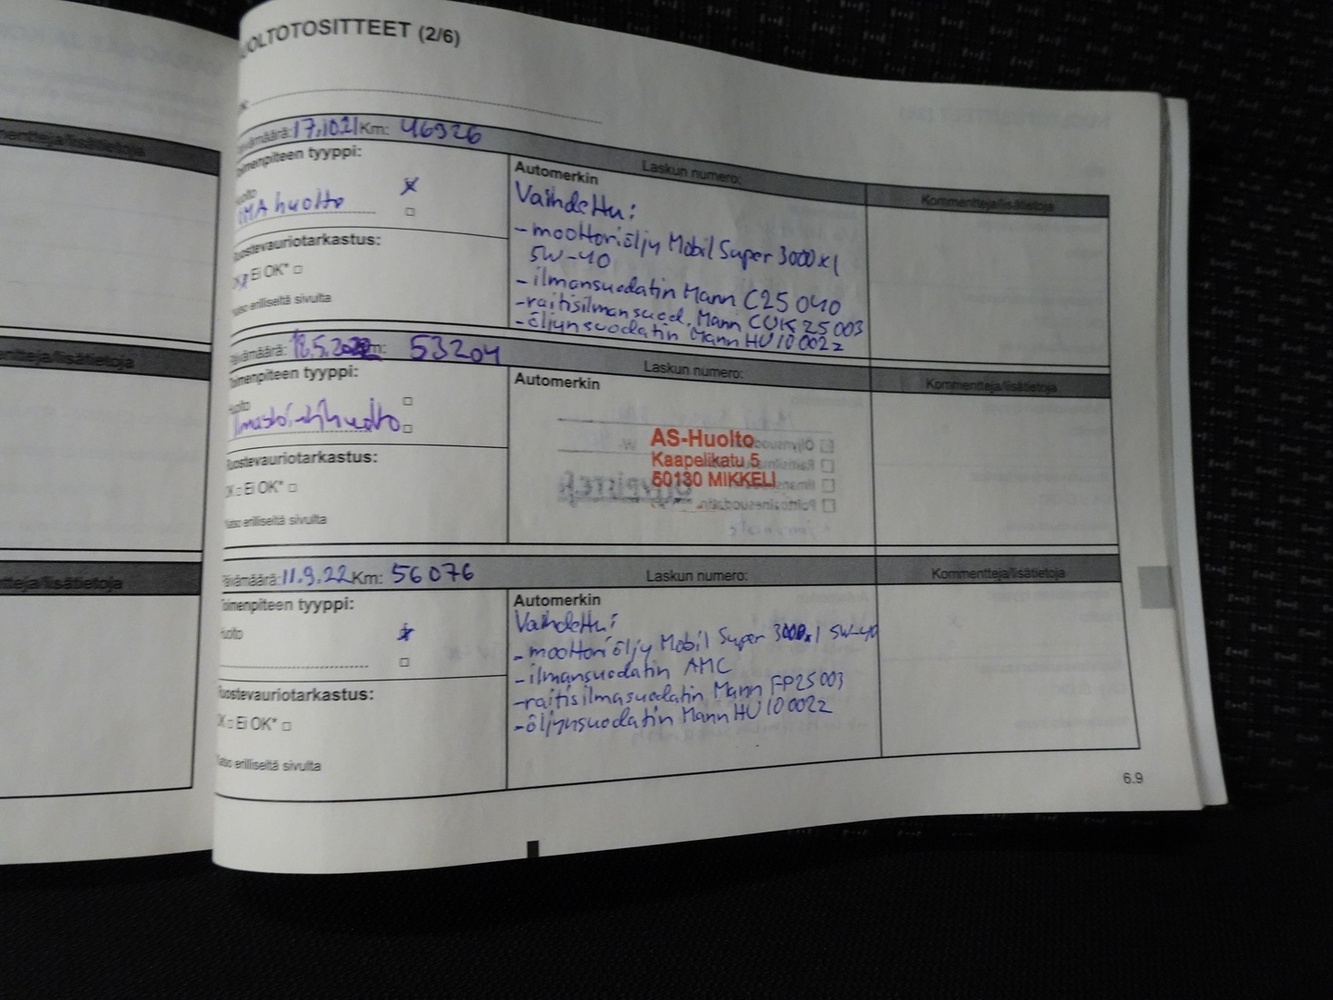 HUOLTOTOSITTEET (2/6)
Päivämäärä: 17.10.21 Km: 46926
Toimenpiteen tyyppi:
Huolto
OMA huolto
Ruostevauriotarkastus:
OK Ei OK*
*Katso erilliseltä sivulta
Laskun numero:
Automerkin
Vaihdettu:
-moottoriöljy Mobil Super 3000x1
5W-40
-ilmansuodatin Mann C25 040
-raitisilmansuod. Mann CUK 25 003
-öljynsuodatin Mann HU 10 002z
Kommentteja/lisätietoja
Päivämäärä: 18.5.2022 Km: 53204
Toimenpiteen tyyppi:
Huolto
Ilmastointihuolto
Ruostevauriotarkastus:
OK Ei OK*
*Katso erilliseltä sivulta
Laskun numero:
Automerkin
AS-Huolto
Kaapelikatu 5
50130 MIKKELI
Kommentteja/lisätietoja
Päivämäärä: 11.9.22 Km: 56076
Toimenpiteen tyyppi:
Huolto
Ruostevauriotarkastus:
OK Ei OK*
*Katso erilliseltä sivulta
Laskun numero:
Automerkin
Vaihdettu:
-moottoriöljy Mobil Super 3000x1 5W-40
-ilmansuodatin AMC
-raitisilmasuodatin Mann FP25003
-öljynsuodatin Mann HU 10 002z
Kommentteja/lisätietoja
6.9